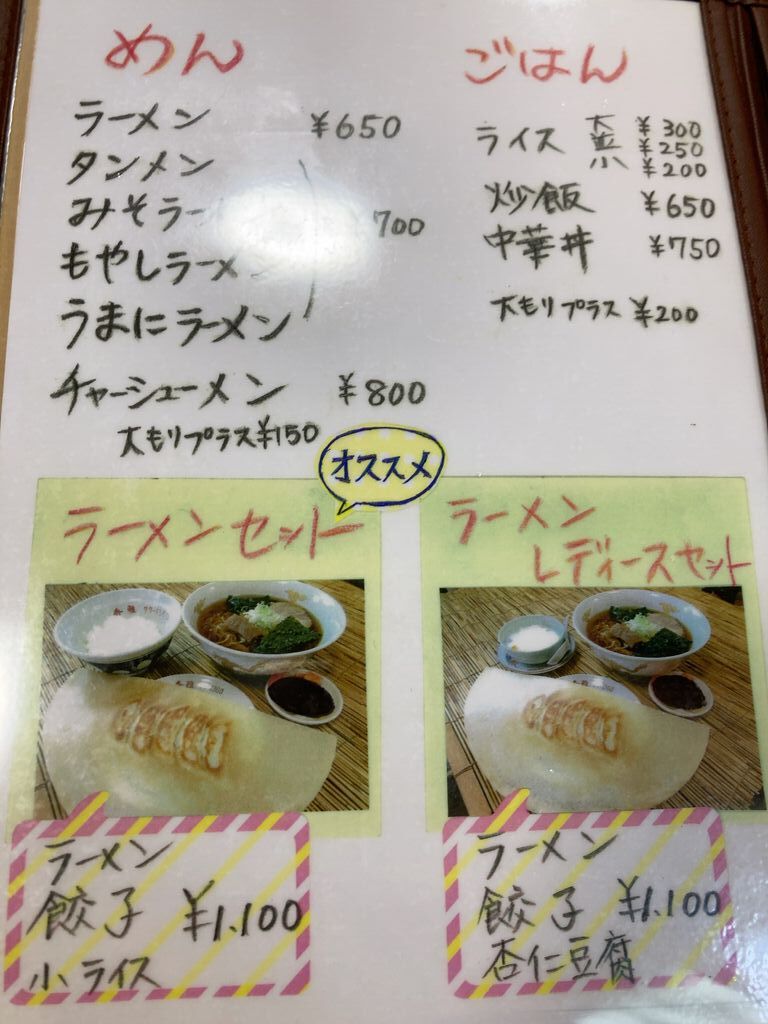 めん
ラーメン ¥650
タンメン
みそラー 700
もやしラーメ
うまにラーメン
チャーシューメン ¥800
大もりプラス¥150
ごはん
ライス 大 ¥300
¥250
小 ¥200
炒飯 ¥650
中華丼 ¥750
大もりプラス ¥200
オススメ
ラーメンセット
ラーメン
餃子 ¥1.100
小ライス
ラーメン
レディースセット
ラーメン
餃子 ¥1.100
杏仁豆腐